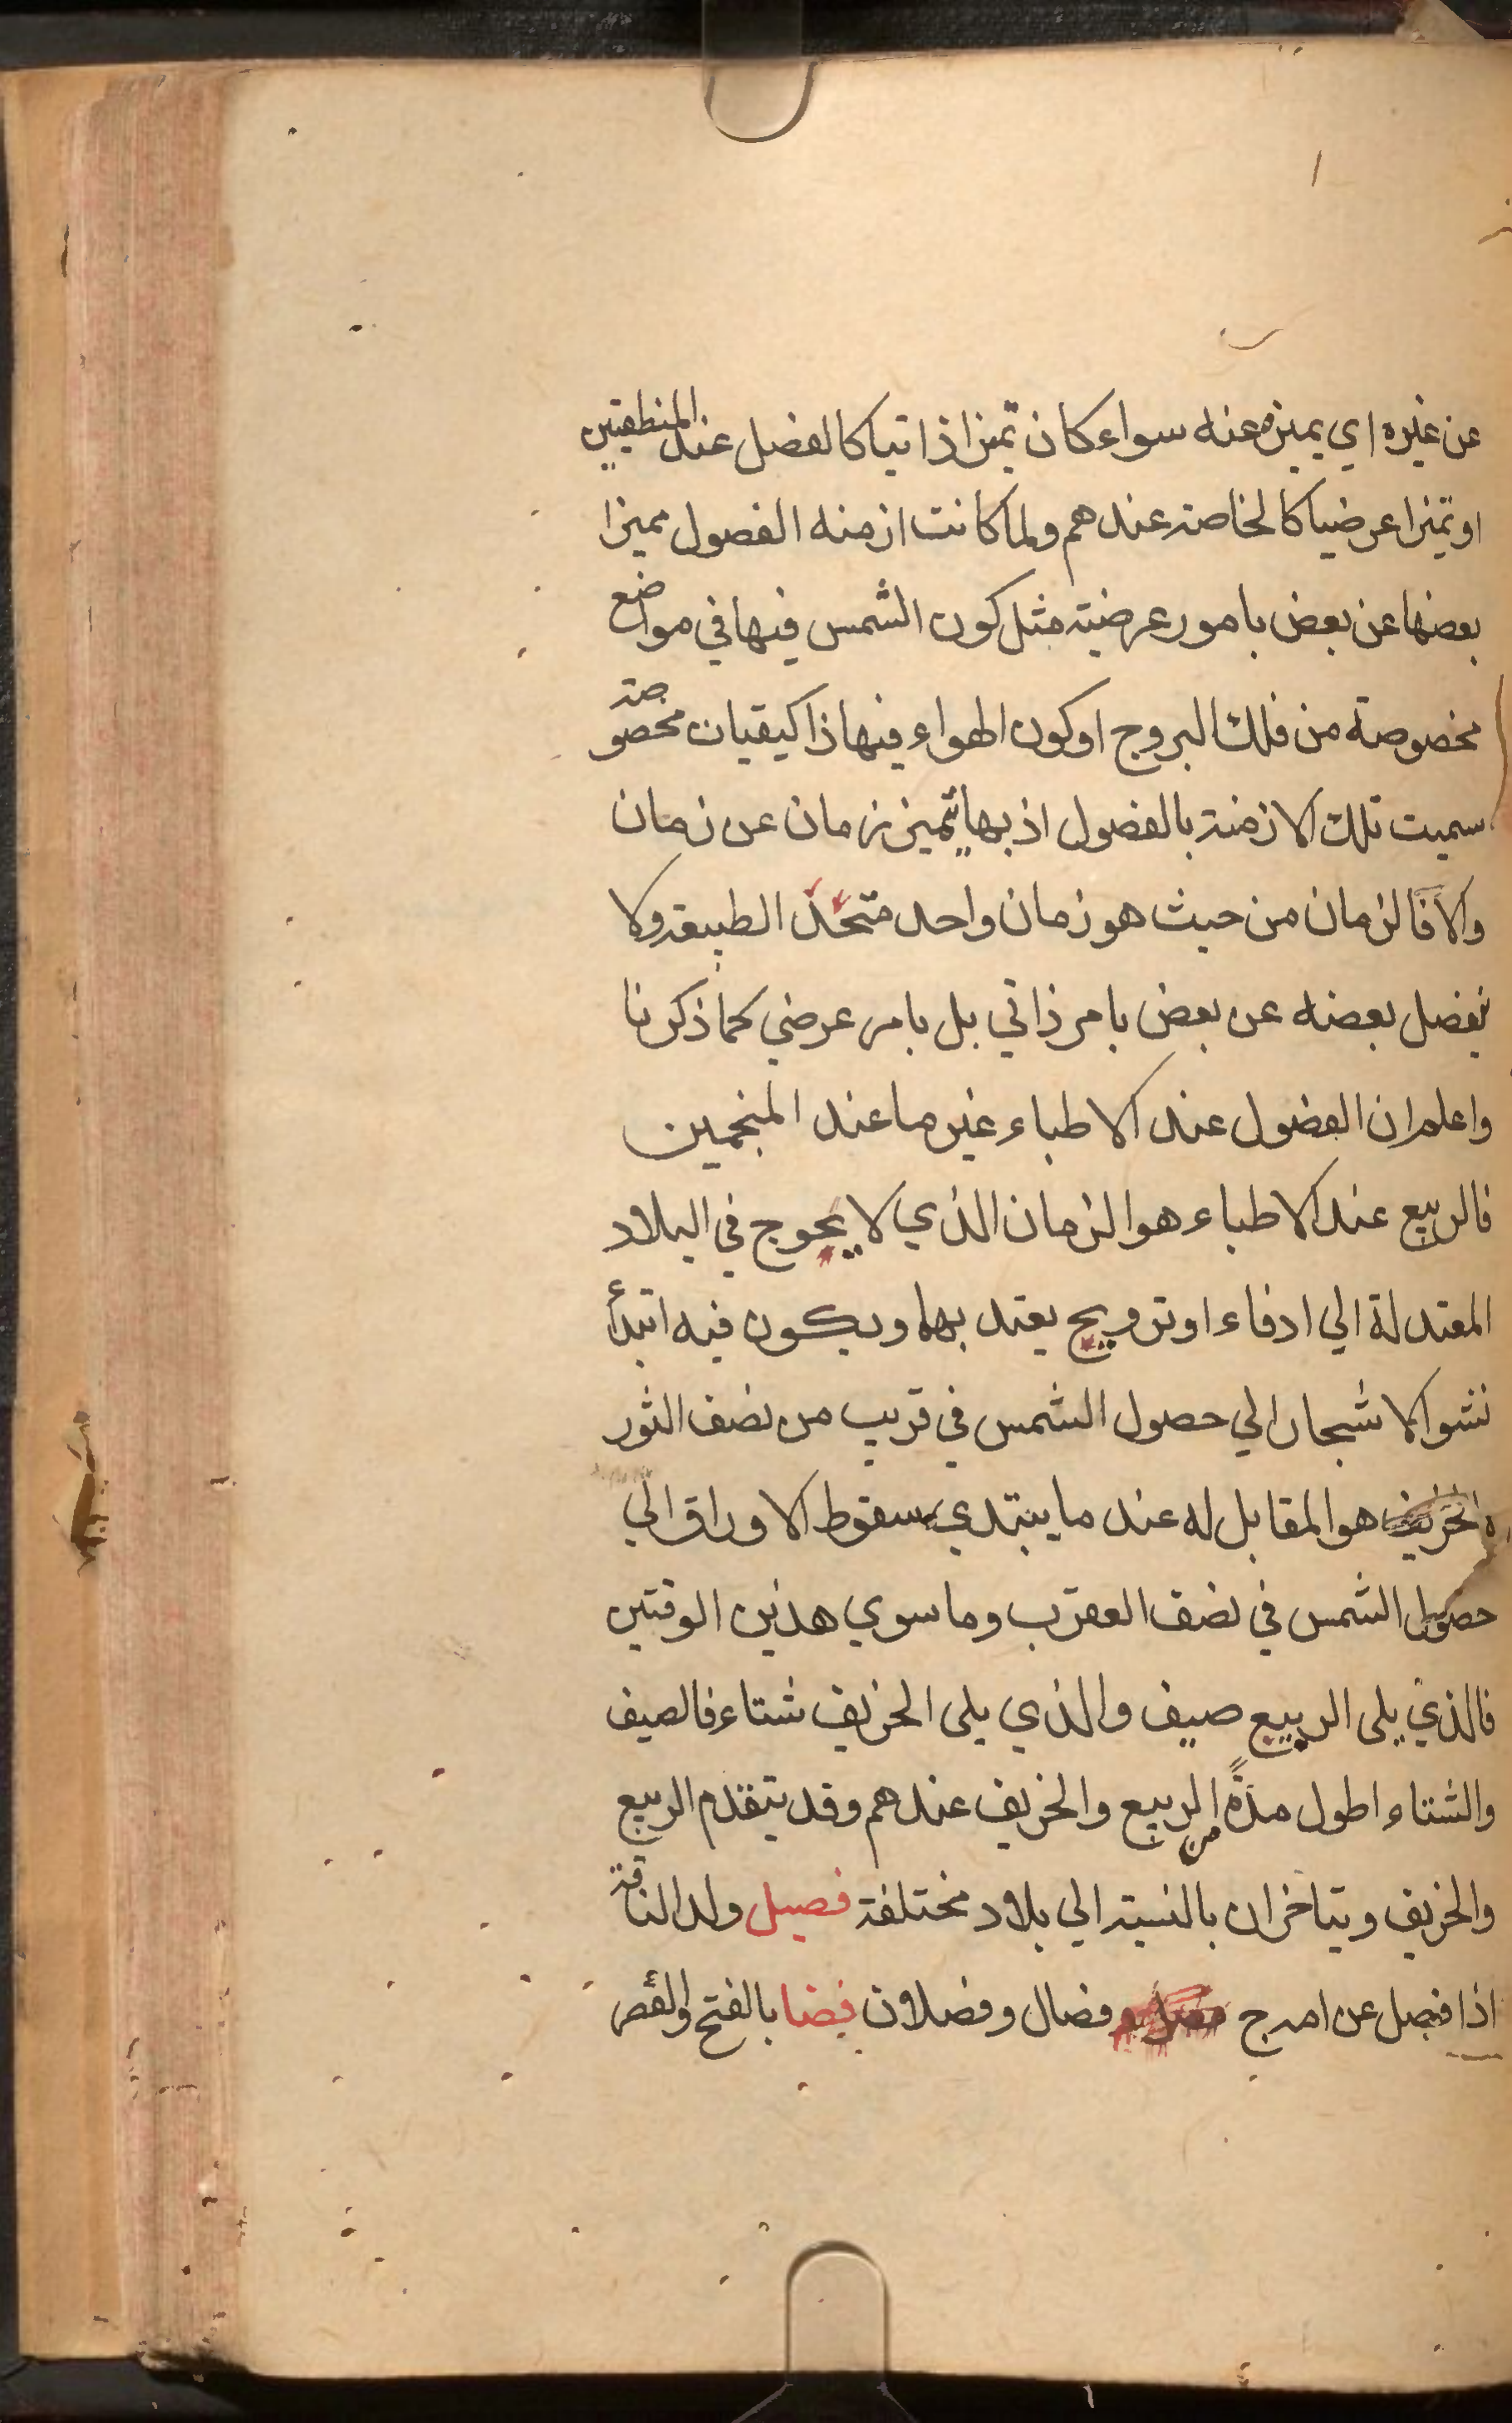 عن غيره اي يميزه عنه سواء كان تميزا ذاتيا كالفصل عند المنطقيين
او تميزا عرضيا كالخاصة عندهم ولما كانت ازمنه الفصول مميزا
بعضها عن بعض بامور عرضية مثل كون الشمس فيها في مواضع
مخصوصة من فلك البروج او كون الهواء فيها ذا كيفيات مخصوصة
سميت تلك الازمنة بالفصول اذ بها يتميز زمان عن زمان
والا فالزمان من حيث هو زمان واحد متحد الطبيعة ولا
يفصل بعضه عن بعض بامر ذاتي بل بامر عرضي كما ذكرنا
واعلم ان الفصول عند الاطباء غير ما عند المنجمين
فالربيع عند الاطباء هو الزمان الذي لا يحوج في البلاد
المعتدلة الي ادفاء او ترويح يعتد بهما ويكون فيه ابتدأ
نشو الاشجار الي حصول الشمس في قريب من نصف الثور
والخريف هو المقابل له عند ما يبتدي بسقوط الاوراق الي
حصول الشمس في نصف العقرب وما سوي هذين الوقتين
فالذي يلي الربيع صيف والذي يلي الخريف شتاء فالصيف
والشتاء اطول مدةً من الربيع والخريف عندهم وقد يتقدم الربيع
والخريف ويتاخران بالنسبة الي بلاد مختلفة فصيل ولد الناقة
اذا فصل عن امه ج وفصال وفصلان فضا بالفتح والقصر